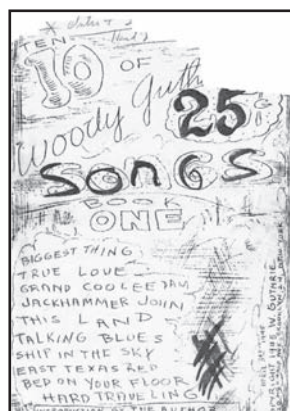 TEN
10 OF
Woody Guth
25¢
SONGS
BOOK
ONE
BIGGEST THING
TRUE LOVE
GRAND COOLEE DAM
JACKHAMMER JOHN
THIS LAND
TALKING BLUES
SHIP IN THE SKY
EAST TEXAS RED
BED ON YOUR FLOOR
HARD TRAVELING
INTRODUCTION BY THE AUTHOR
1945 W. GUTHRIE